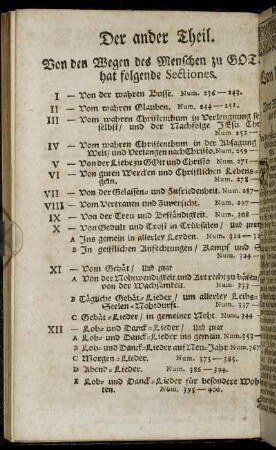 Der ander Theil.
Von den Wegen des Menschen zu GOT
hat folgende Sectiones.
I — Von der wahren Busse. Num. 236 — 243.
II — Vom wahren Glauben. Num. 244 — 251.
III — Vom wahren Christenthum in Verleugnung se
selbst/ und der Nachfolge JEsu Chr
Num 252 —
IV — Vom wahren Christenthum in der Absagung
Welt/ und Verlangen nach Christo. Num. 259
V — Von der Liebe zu GOtt und Christo Num. 271 —
VI — Von guten Wercken und Christlichen Lebens-
Regeln. Num. 278
VII — Von der Gelassen- und Zufriedenheit. Num. 287 —
VIII — Vom Vertrauen und Zuversicht. Num. 297 —
IX — Von der Treu und Beständigkeit. Num. 308
X — Von Gedult und Trost in Trübsalen/ und zwar
A Ins gemein in allerley Leyden. Num. 312 — 32
B In geistlichen Anfechtungen/ Kampf und S
Num. 324 —
XI — Vom Gebät/ und zwar
A Von der Nohtwendigkeit und Art recht zu bäten/
von der Wachsamkeit. Num. 333
B Tägliche Gebät-Lieder/ um allerley Leibs-
Seelen-Nohtdurft. Num. 337
C Gebät-Lieder/ in gemeiner Noht Num. 344
XII — Lob- und Danck-Lieder/ und zwar
A Lob- und Danck-Lieder ins gemein. Num. 357 —
B Lob- und Danck-Lieder auf Neu-Jahr Num. 367
C Morgen-Lieder. Num. 375 — 385.
D Abend-Lieder. Num. 386 — 394.
E Lob- und Danck-Lieder/ für besondere Woh
ten. Num. 395 — 400.